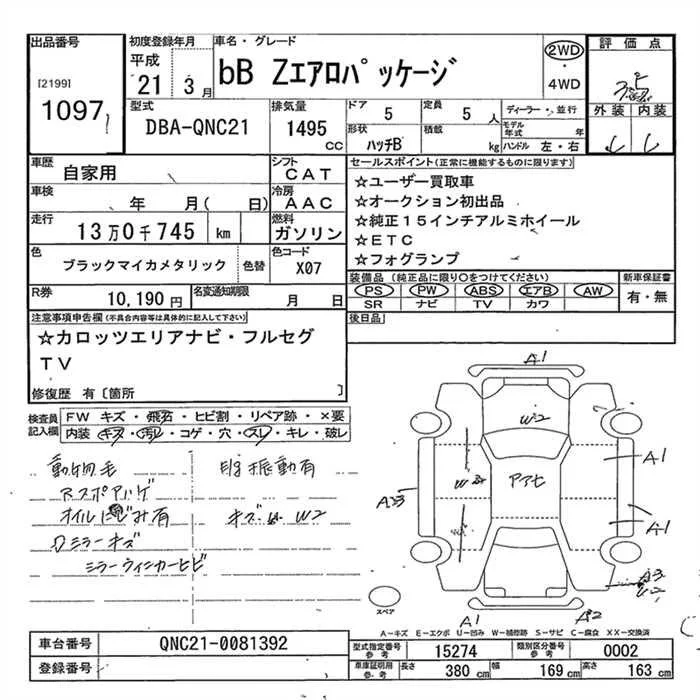 出品番号
[2199]
1097
初度登録年月
平成
21 3月
車名・グレード
bB Zエアロパッケージ
2WD
・
4WD
評価点
3.5
外装 内装
型式
DBA-QNC21
排気量
1495 CC
ドア 5
定員 5 人
形状 ハッチB
積載 kg
ディーラー・並行
モデル年式 年
ハンドル 左・右
車歴 自家用
シフト CAT
車検 年 月( 日)
冷房 AAC
走行 13万0千745 km
燃料 ガソリン
色 ブラックマイカメタリック 色替
色コード X07
R券 10,190円
名変通知期限 月 日
セールスポイント(正常に機能するものに限ります)
☆ユーザー買取車
☆オークション初出品
☆純正15インチアルミホイール
☆ETC
☆フォグランプ
装備品 (純正品に限り○をつけてください)
PS PW ABS エアB AW
SR ナビ TV カワ
新車保証書
有・無
後日品
注意事項申告欄(不具合内容等は具体的に記入して下さい)
☆カロッツエリアナビ・フルセグ
TV
修復歴 有〔箇所 〕
検査員記入欄
FW キズ・飛石・ヒビ割・リペア跡・×要
内装 キズ・汚レ・コゲ・穴・スレ・キレ・破レ
動物毛
オイルにじみ有 キズ W2
ミラーキズ
ミラーウィンカーヒビ
振動有
A1
W2
A1
A3
W2
アアヒ
A1
A3
W2
A1
A2
スペア
A-キズ E-エクボ U-凹み W-補修跡 S-サビ C-腐食 XX-交換済
車台番号 QNC21-0081392
登録番号
型式指定番号 参考 15274
類別区分番号 参考 0002
車庫証明用 参考 長さ 380 cm 幅 169 cm 高さ 163 cm